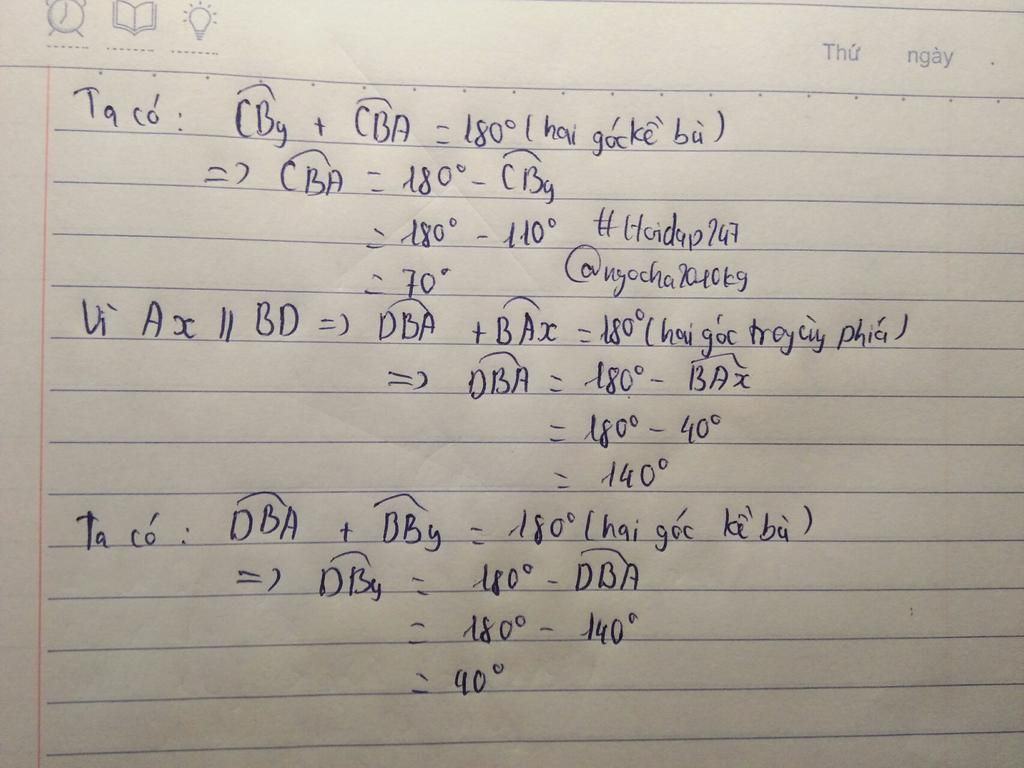 Thứ ngày .
Ta có : CBy + CBA = 180° (hai góc kề bù)
=> CBA = 180° - CBy
= 180° - 110° #Hoidap247
= 70° @ngocha2010kg
Vì Ax // BD => DBA + BAx = 180° (hai góc trog cùg phiá)
=> DBA = 180° - BAx
= 180° - 40°
= 140°
Ta có : DBA + DBy = 180° (hai góc kề bù)
=> DBy = 180° - DBA
= 180° - 140°
= 40°